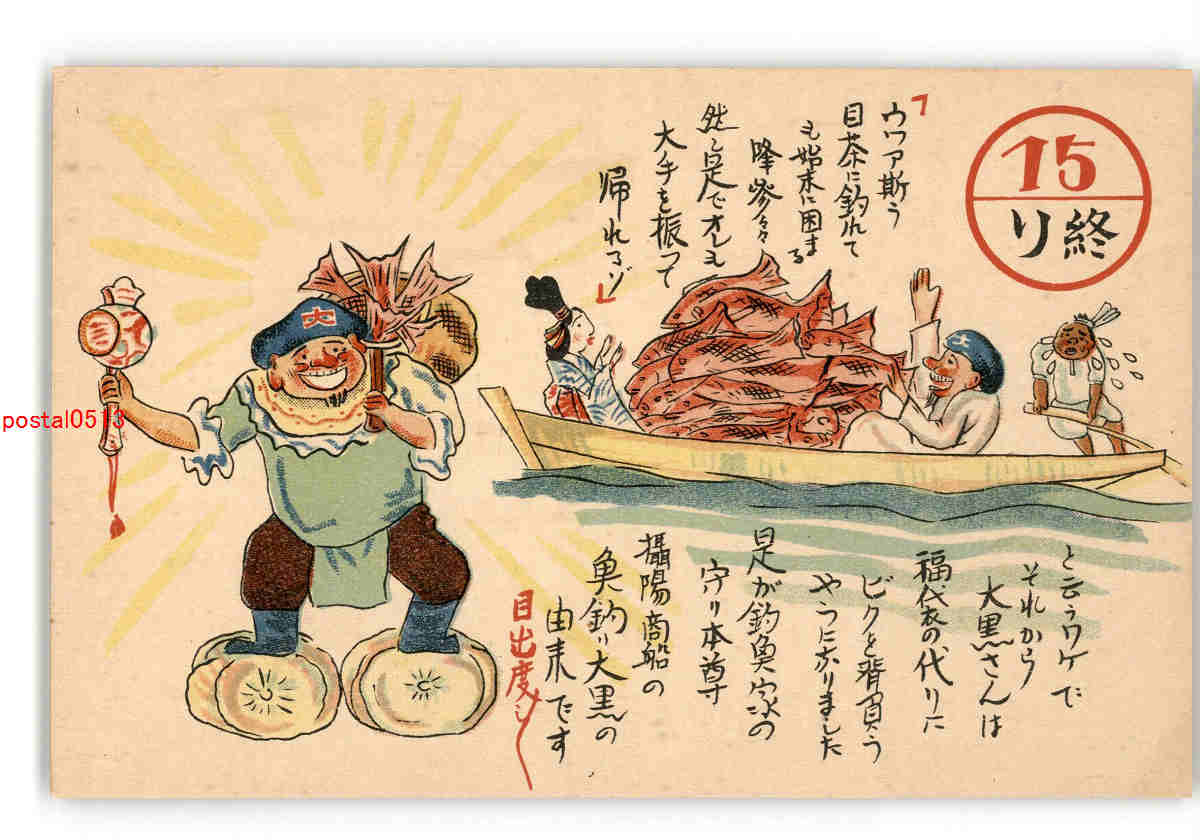 15
終リ
「ウワァ斯う
目茶に釣れて
も始末に困まる
降参々々
然し是でオレも
大手を振って
帰れるゾ」
大
大
と云うワケで
それから
大黒さんは
福代衣の代りに
ビクと背負う
やうになりました
是が釣魚家の
守り本尊
攝陽商船の
魚釣り大黒の
由来です
目出度し〱
postal0513